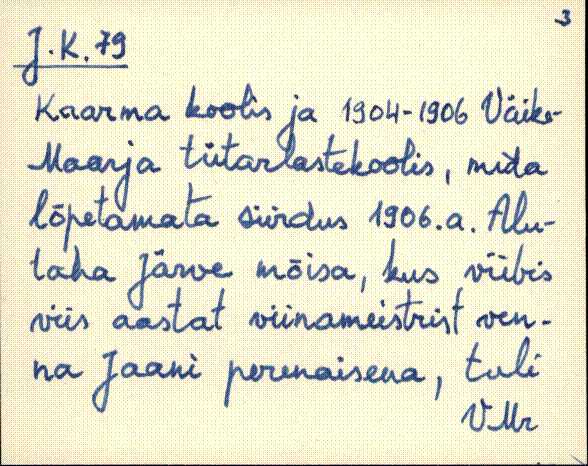 3
J.K. 79
Kaarma koolis ja 1904-1906 Väike-
Maarja tütarlastekoolis, mida
lõpetamata siirdus 1906.a. Alu-
taha Järve mõisa, kus viibis
viis aastat viinameistrist ven-
na Jaani perenaisena, tuli
VMr